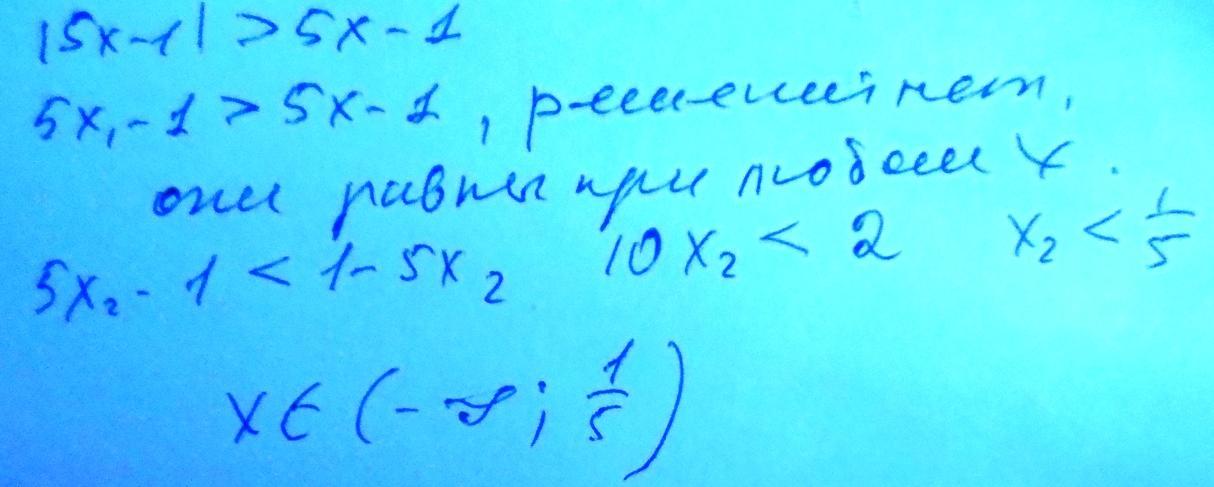 |5x-1| > 5x-1
5x₁-1 > 5x-1, решений нет,
они равны при любом x.
5x₂-1 < 1-5x₂ 10x₂ < 2 x₂ < 1/5
x∈(-∞; 1/5)